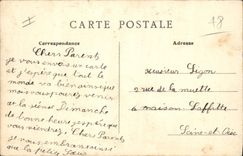 78
CARTE POSTALE
Correspondance
Adresse
Chers Parents
je vous envois un carte
et j'espère que tout le
monde va bien ainsi que
nous vous pouvez venir
de la
Dimanche
de bonne heure j'espère que
vous viendrez. Chers Parents
je vous embrasse
la petite
Monsieur Lejon
2 rue de la muette
a maison Laffitte
Seine-et-Oise